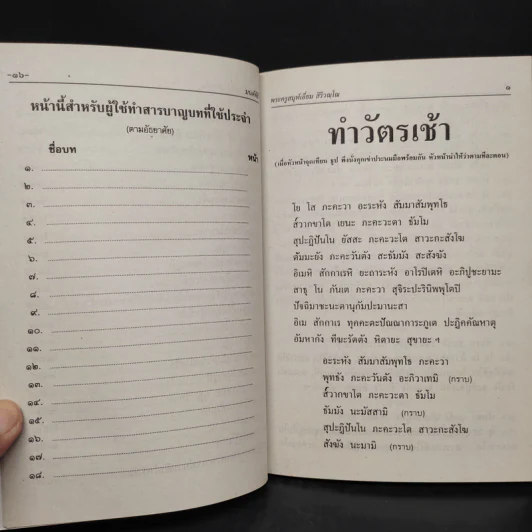 -๑๖-
หน้านี้สำหรับผู้ใช้ทำสารบาญบทที่ใช้ประจำ
(ตามอัธยาศัย)
ชื่อบท หน้า
๑.
๒.
๓.
๔.
๕.
๖.
๗.
๘.
๙.
๑๐.
๑๑.
๑๒.
๑๓.
๑๔.
๑๕.
๑๖.
๑๗.
๑๘.
พระครูสมุห์เอี่ยม สิริวณฺโณ ๑
ทำวัตรเช้า
(เมื่อหัวหน้าจุดเทียน ธูป พึงนั่งคุกเข่าประนมมือพร้อมกัน หัวหน้านำให้ว่าตามทีละตอน)
โย โส ภะคะวา อะระหัง สัมมาสัมพุทโธ
ส๎วากขาโต เยนะ ภะคะวะตา ธัมโม
สุปะฏิปันโน ยัสสะ ภะคะวะโต สาวะกะสังโฆ
ตัมมะยัง ภะคะวันตัง สะธัมมัง สะสังฆัง
อิเมหิ สักกาเรหิ ยะถาระหัง อาโรปิเตหิ อะภิปูชะยามะ
สาธุ โน ภันเต ภะคะวา สุจิระปะรินิพพุโตปิ
ปัจฉิมาชะนะตานุกัมปะมานะสา
อิเม สักกาเร ทุคคะตะปัณณาการะภูเต ปะฏิคคัณหาตุ
อัมหากัง ทีฆะรัตตัง หิตายะ สุขายะ ฯ
อะระหัง สัมมาสัมพุทโธ ภะคะวา
พุทธัง ภะคะวันตัง อะภิวาเทมิ (กราบ)
ส๎วากขาโต ภะคะวะตา ธัมโม
ธัมมัง นะมัสสามิ (กราบ)
สุปะฏิปันโน ภะคะวะโต สาวะกะสังโฆ
สังฆัง นะมามิ (กราบ)